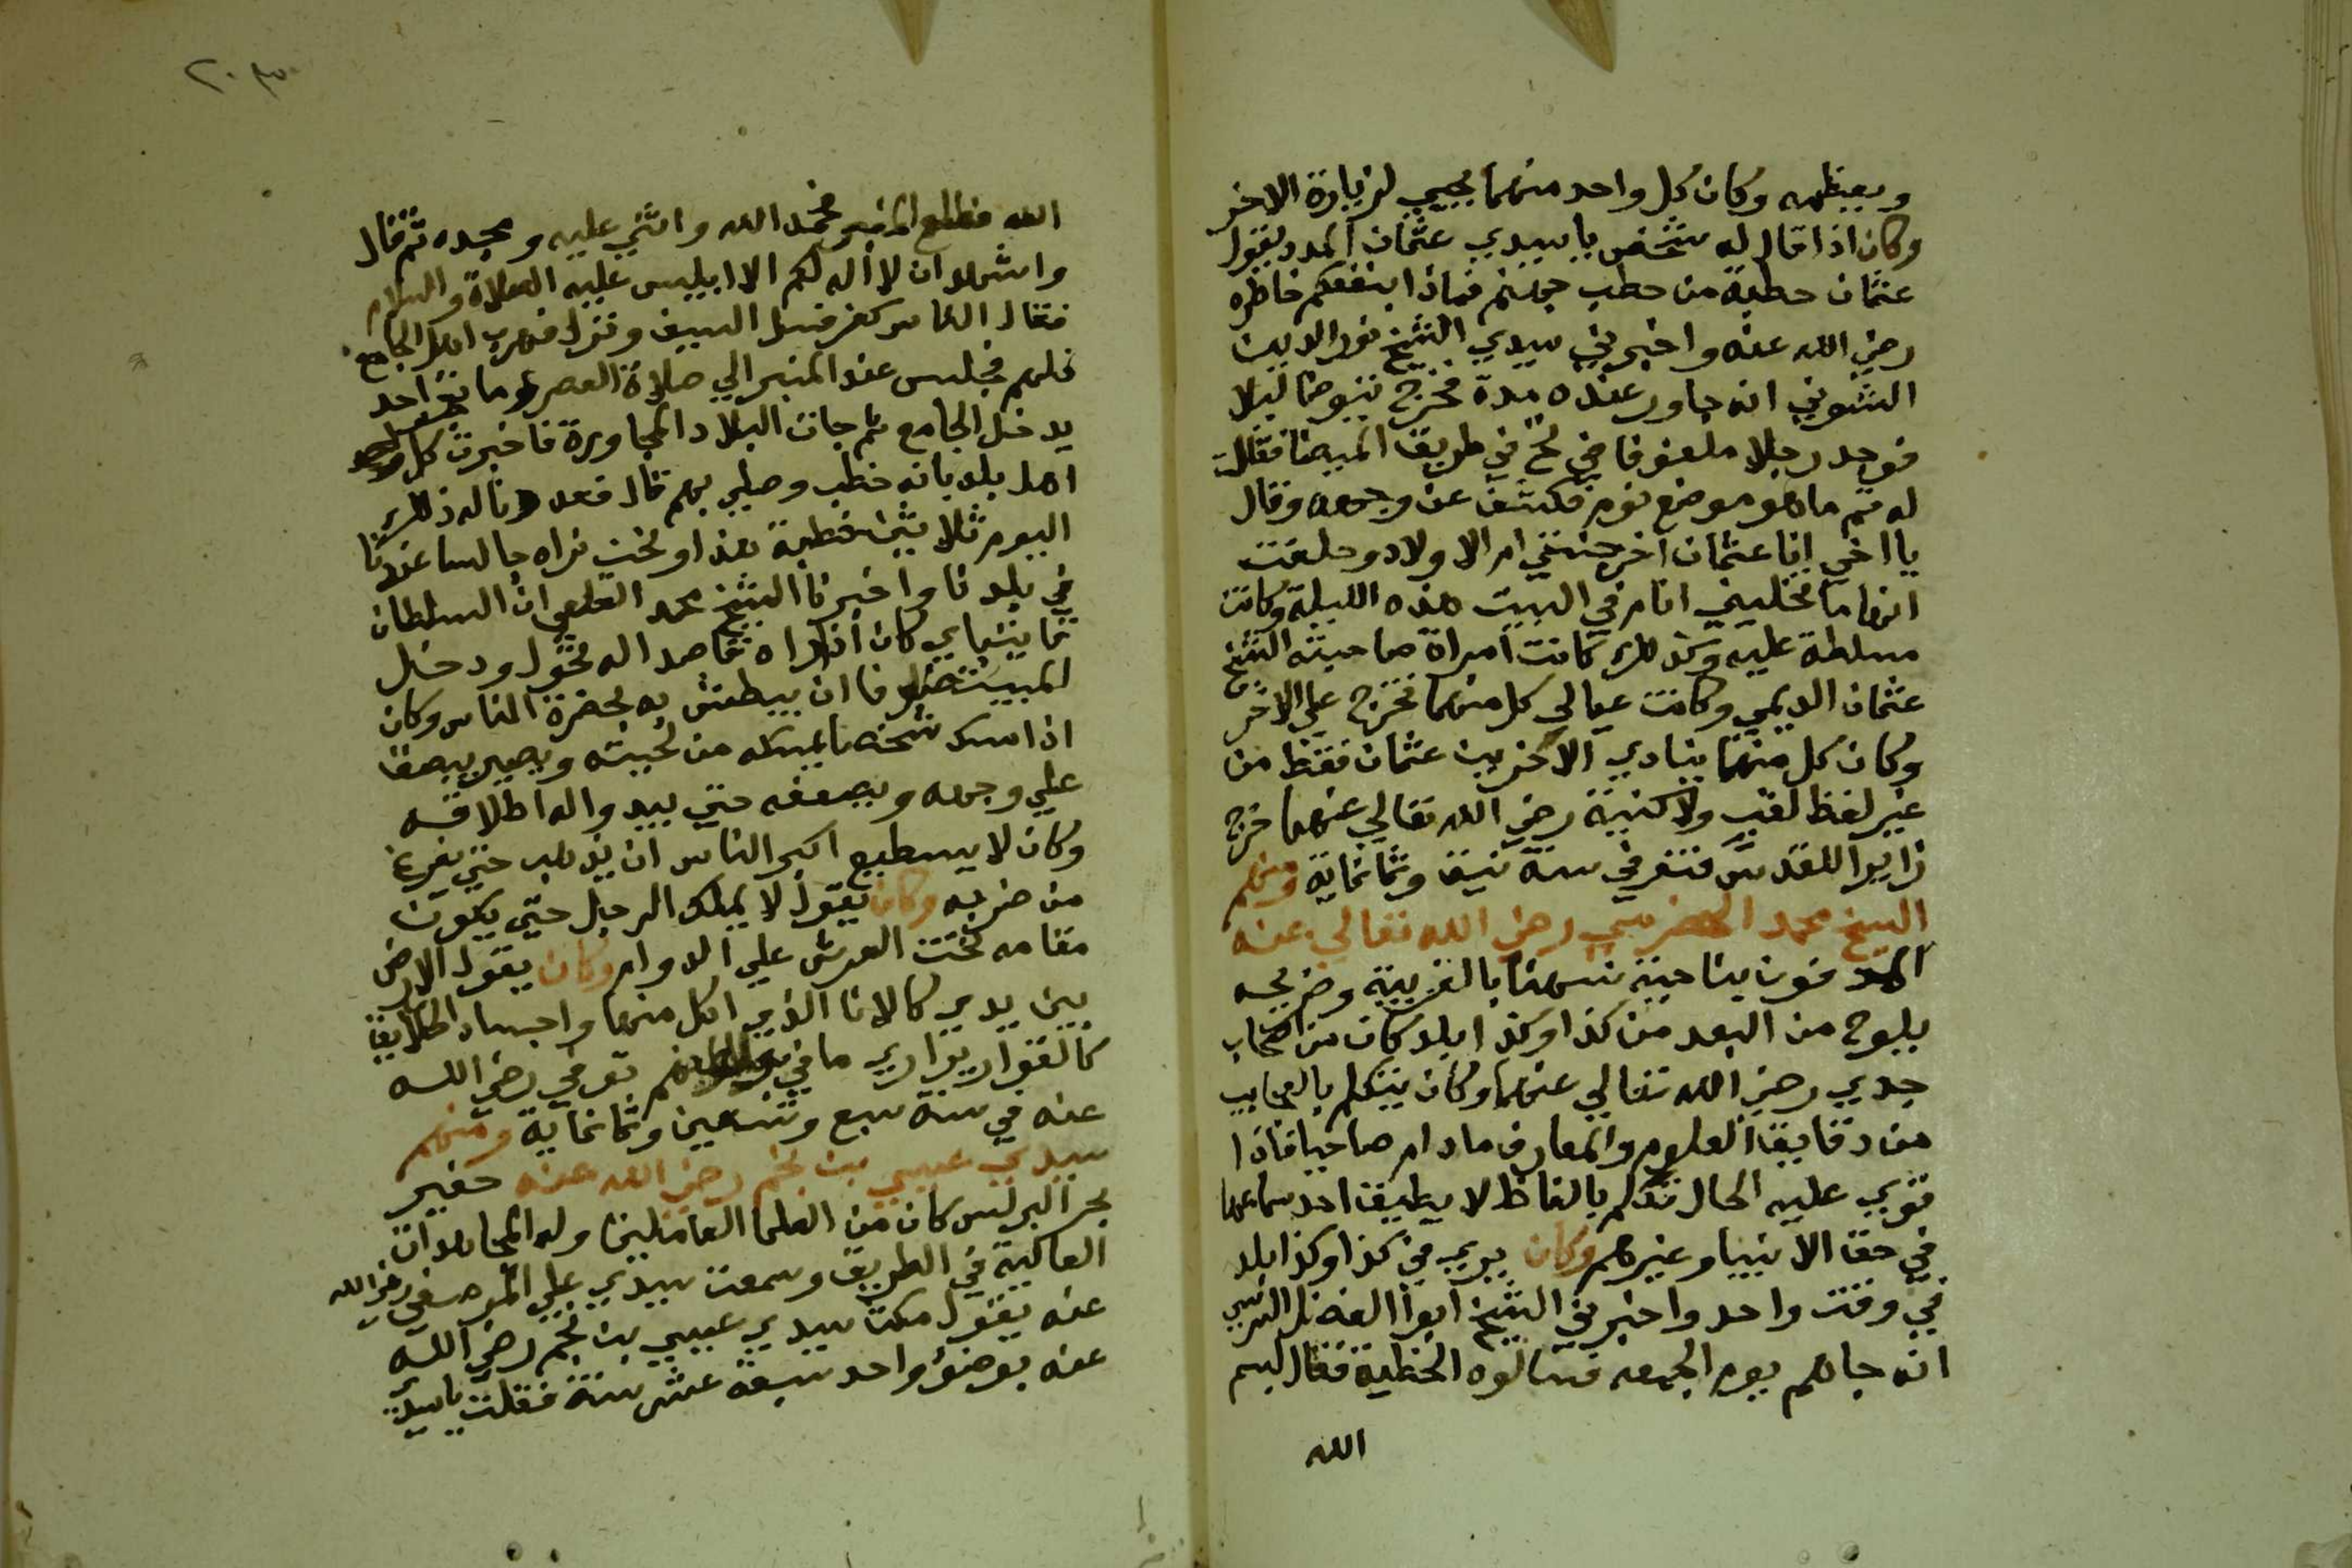 ويعظمه وكان كل واحد منهما يجيي لزيارة الاخر
وكان اذا قال له شخص يا سيدي عثمان المدد يقول
عثمان حطبة من حطب جهنم فماذا ينفعكم خاطره
رضي الله عنه واخبرني سيدي الشيخ نور الدين
الشوني انه جاور عنده مدة فخرج يتوضا ليلا
فوجد رجلا ملفوفا في نخ في طريق الميضا فقلت
له قم ما هو موضع نوم فكشف عن وجهه وقال
يا اخي انا عثمان اخرجتني ام الاولاد وحلفت
انها ما تخليني انام في البيت هذه الليلة وكانت
مسلطة عليه وكذلك كانت امراة صاحبه الشيخ
عثمان الديمي وكانت عيالي كل منهما تخرج علي الاخر
وكان كل منهما ينادي الاخر بيت عثمان فقط من
غير لفظ لقب ولا كنية رضي الله تعالي عنهما خرج
زايرا للقدس فتوفي سنة نيف وثمانماية ومنهم
الشيخ محمد الحضرمي رضي الله تعالي عنه
المدفون بناحية نسهنا بالغربية وضريحه
يلوح من البعد من كذا وكذا بلد كان من اصحاب
جدي رضي الله تعالي عنهما وكان يتكلم بالعجايب
من دقايق العلوم والمعارف ما دام صاحيا فاذا
قوي عليه الحال تكلم بالفاظ لا يطيق احد سماعها
في حق الانبيا وغيرهم وكان يري في كذا وكذا بلد
في وقت واحد واخبرني الشيخ ابوا الفضل السرسي
انه جاهم يوم الجمعه فسالوه الخطبة فقال بسم
الله
الله فطلع المنبر فحمد الله واثني عليه ومجده ثم قال
واشهد ان لا اله لكم الا ابليس عليه الصلاة والسلام
فقال الناس كفر فسل السيف ونزل فهرب اهل الجامع
كلهم فجلس عند المنبر الي صلاة العصر وما بقي احد
يدخل الجامع ثم جات البلاد المجاورة فاخبرت كل
اهل بلد بانه خطب وصلي بهم قال فعددنا له ذلك
اليوم ثلاثين خطبة هذا ونحن نراه جالسا عندنا
في بلدنا واخبرنا الشيخ محمد القلعي ان السلطان
قايتباي كان اذا راه قاصدا له تحول ودخل
البيت خوفا ان يبطش به بحضرة الناس وكان
اذا امسك شخصا يمسكه من لحيته ويصير يبصق
علي وجهه ويصفعه حتي يبدوا له اطلاقه
وكان لا يسطيع اكبر الناس ان يذهب حتي يفرغ
من ضربه وكان يقول لا يملك الرجل حتي يكون
مقامه تحت العرش علي الدوام وكان يقول الارض
بين يدي كالانا الذي اكل منها واجساد الخلايق
كالقوارير اري ما في بواطنهم توفي رضي الله
عنه في سنة سبع وتسعين وثمانماية ومنهم
سيدي عيسي بن نجم رضي الله عنه خفير
بحر البرلس كان من العلما العاملين وله المجاهدات
العالية في الطريق وسمعت سيدي علي المرصفي رضي الله
عنه يقول مكث سيدي عيسي بن نجم رضي الله
عنه بوضؤ واحد سبعة عشر سنة فقلت يا سيدي